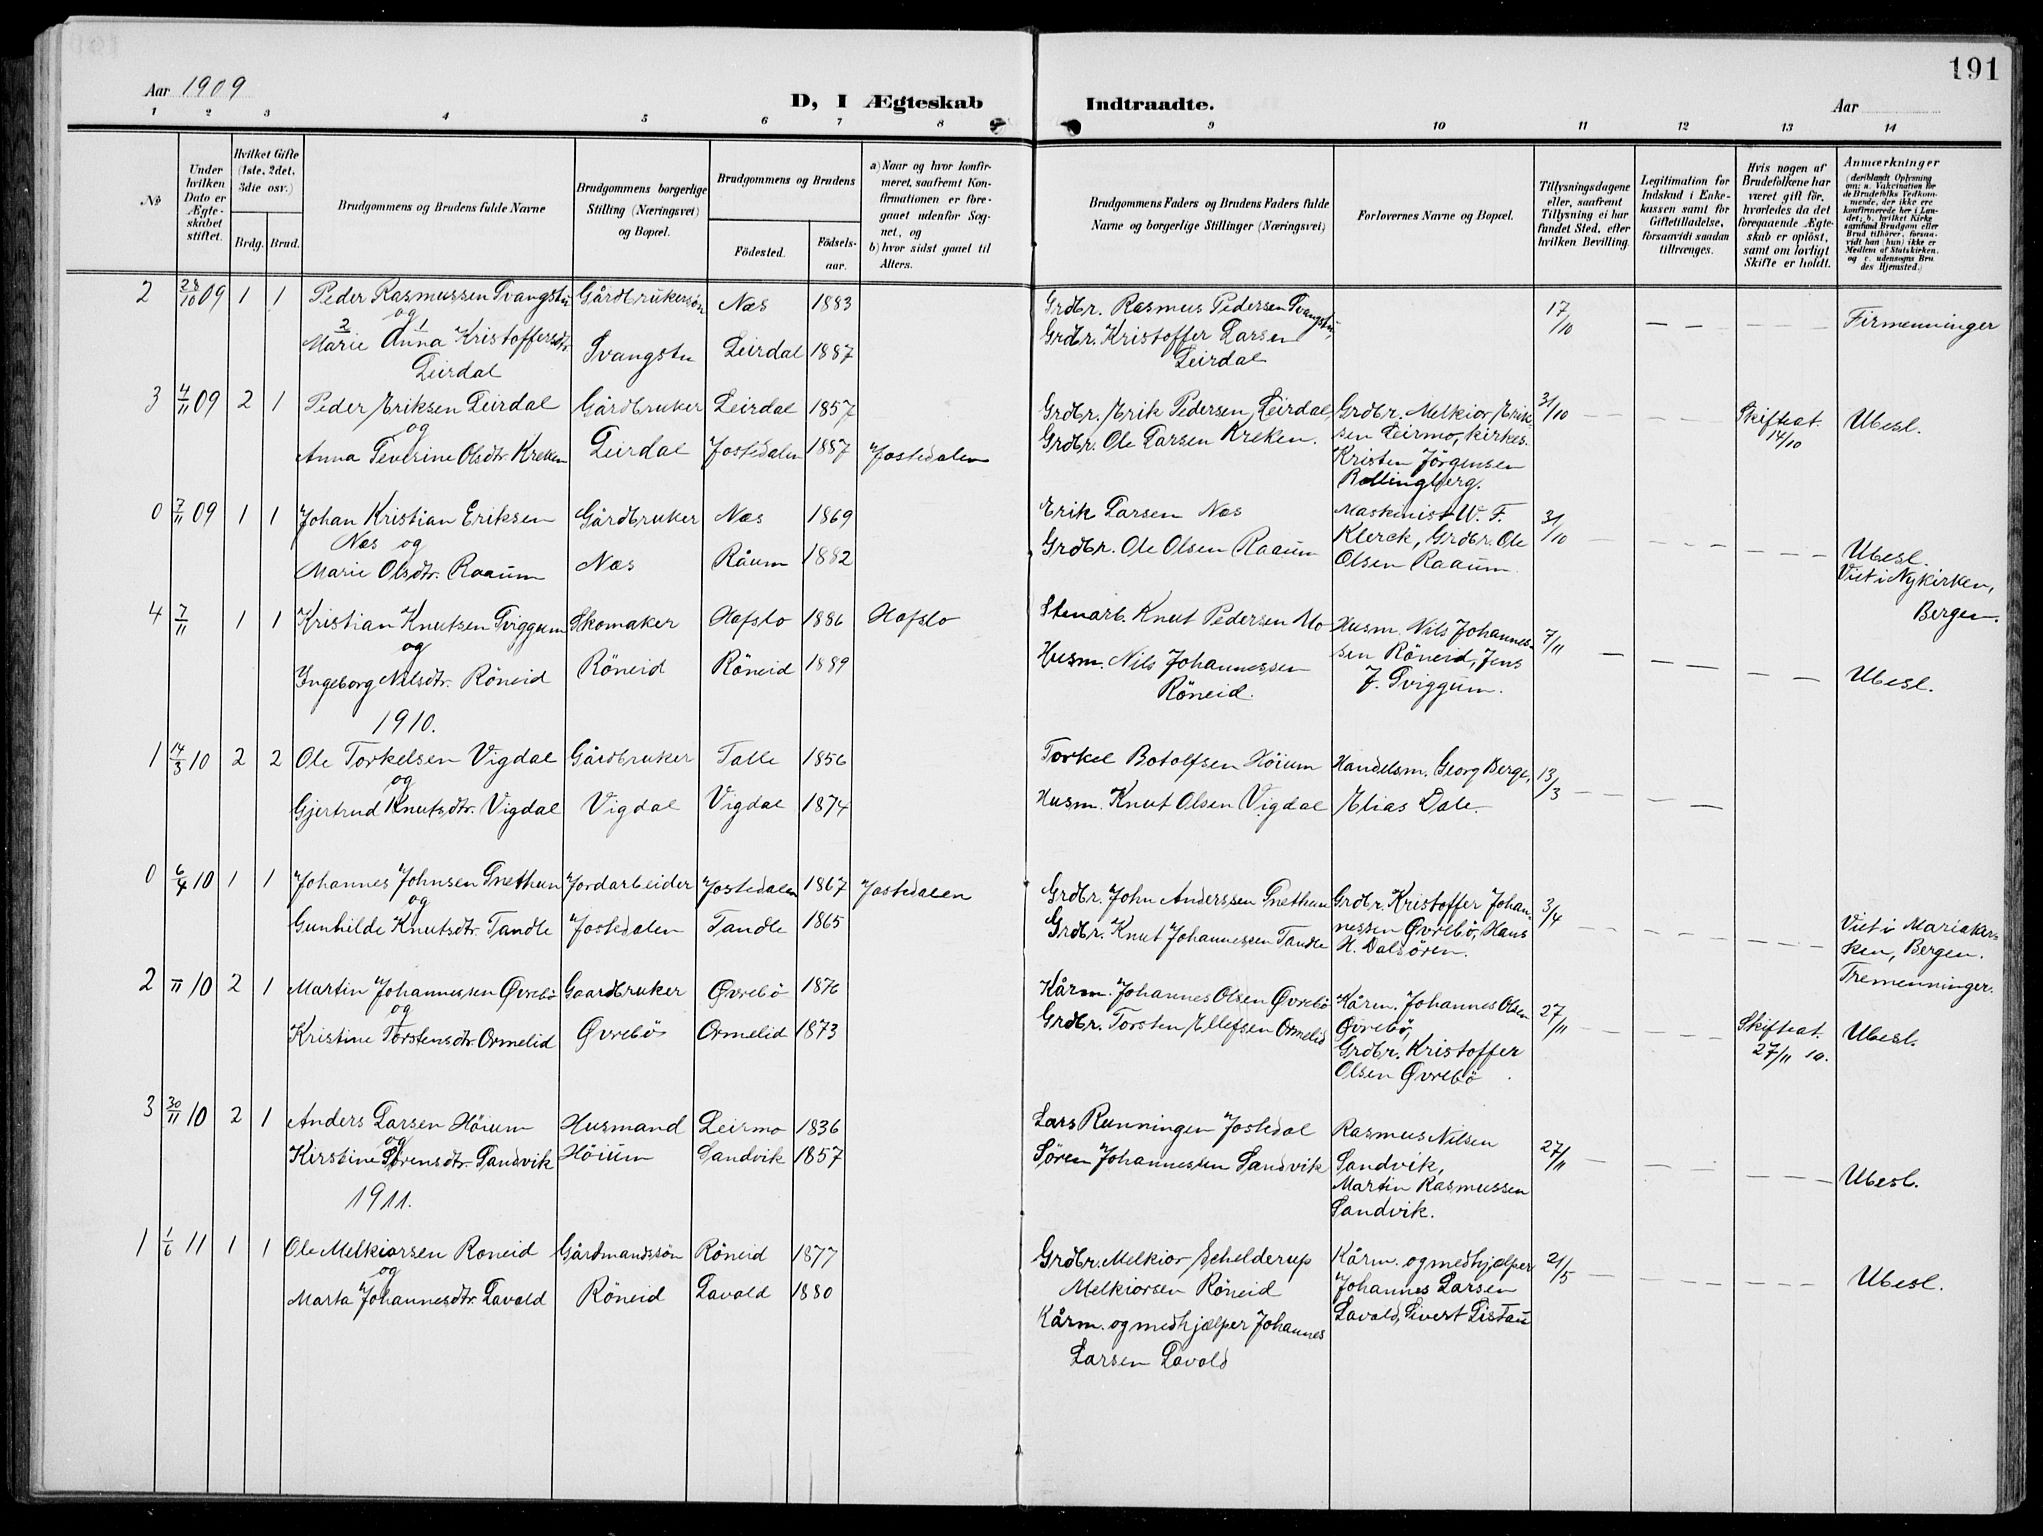 191
Aar 1909
D, I Ægteskab Indtraadte.
Aar
1 2 3 4 5 6 7 8 9 10 11 12 13 14
№
Under hvilken Dato er Ægteskabet stiftet.
Hvilket Gifte (1ste, 2det, 3die osv.)
Brdg. Brud.
Brudgommens og Brudens fulde Navne
Brudgommens borgerlige Stilling (Næringsvei) og Bopæl.
Brudgommens og Brudens
Fødested.
Fødselsaar.
a) Naar og hvor konfirmeret, saafremt Konfirmationen er foregaaet udenfor Sognet, og
b) hvor sidst gaaet til Alters.
Brudgommens Faders og Brudens Faders fulde Navne og borgerlige Stillinger (Næringsvei)
Forlovernes Navne og Bopæl.
Tillysningsdagene eller, saafremt Tillysning ei har fundet Sted, efter hvilken Bevilling.
Legitimation for Indskud i Enkekassen samt for Giftetilladelse, forsaavidt saadan tiltrænges.
Hvis nogen af Brudefolkene har været gift før, hvorledes da det foregaaende Ægteskab er opløst, samt om lovligt Skifte er holdt.
Anmærkninger (deriblandt Oplysning om: a. Vakcination for de Brudefolks Vedkommende, der ikke ere konfirmerede her i Landet; b. hvilket Kirkesamfund Brudgom eller Brud tilhører, forsaavidt han (hun) ikke er Medlem af Statskirken, og c. udensogns Brudes Hjemsted.)
2 28/10 09 1 1 Peder Rasmussen Svangstu Gårdbrukersøn Næs 1883 Grdbr. Rasmus Pedersen Svangstu, 17/10 — — — — Firmenninger
og
2 1
Marie Anna Kristoffersdtr. Leirdal Svangstu Leirdal 1887 Grdbr. Kristoffer Larsen Leirdal
3 4/11 09 2 1 Peder Eriksen Leirdal Gårdbruker Leirdal 1857 Grdbr. Erik Pedersen, Leirdal, Grdbr. Melkior Eriksen Leirmo, kirkes. 31/10 — — — — Skifteat. 14/10 Ubesl.
og
Anna Severine Olsdtr. Kreken Leirdal Jostedalen 1887 Jostedalen Grdbr. Ole Larsen Kreken. Kristen Jörgensen Bollingberg.
0 7/11 09 1 1 Johan Kristian Eriksen Næs og Gårdbruker Næs 1869 Erik Larsen Næs Maskinist W. F. Klerck, Grdbr. Ole Olsen Raaum. 31/10 — — — — Ubesl.
Marie Olsdtr. Raaum Næs Råum 1882 Grdbr. Ole Olsen Raaum Viet i Nykirken, Bergen.
4 7/11 1 1 Kristian Knutsen Sviggum Skomaker Hafslo 1886 Hafslo Stenarb. Knut Pedersen Mo Husm. Nils Johannessen Röneid, Jens J. Sviggum. 7/11 — — — —
og
Ingeborg Nilsdtr. Röneid Röneid Röneid 1889 Husm. Nils Johannessen Röneid. Ubesl.
1910.
1 14/3 10 2 2 Ole Torkelsen Vigdal Gårdbruker Talle 1856 Torkel Botolfsen Höium Handelsm. Georg Berge, 13/3 — — — —
og
Gjertrud Knutsdtr. Vigdal Vigdal Vigdal 1874 Husm. Knut Olsen Vigdal Elias Dale.
0 6/4 10 1 1 Johannes Johnsen Snethun Jordarbeider Jostedalen 1867 Jostedalen Grdbr. John Anderssen Snethun Grdbr. Kristoffer Johannessen Øvrebö, Hans H. Dalsören. 3/4 — — — —
og
Gunhilde Knutsdtr. Tandle Jostedalen Tandle 1865 Grdbr. Knut Johannessen Tandle Viet i Mariakirken, Bergen.
Tremenninger.
2 11 10 2 1 Martin Johannessen Øvrebö Gaardbruker Øvrebö 1876 Kårm. Johannes Olsen Øvrebö Kårm. Johannes Olsen Øvrebö, 27/11 — — — Skifteat. 27/11 10. Ubesl.
og
Kristine Torstensdtr. Ormelid Øvrebö Ormelid 1873 Grdbr. Torsten Ellefsen Ormelid Grdbr. Kristoffer Olsen Øvrebö
3 30/11 10 2 1 Anders Larsen Höium Husmand Leirmo 1836 Lars Runningen Jostedal Rasmus Nilsen Sandvik, 27/11 — — — —
og
Kirstine Sørensdtr. Sandvik Höium Sandvik 1857 Søren Johannessen Sandvik Martin Rasmussen Sandvik. Ubesl.
1911.
1 1/6 11 1 1 Ole Melkiorsen Roneid Gårdmandssön Röneid 1877 Grdbr. Melkior Schelderup Melkiorsen Röneid Kårm. og medhjælper Johannes Larsen Lavold, Sivert Listau 21/5 — — — — Ubesl.
og
Marta Johannesdtr. Lavold Röneid Lavold 1880 Kårm. og medhjælper Johannes Larsen Lavold